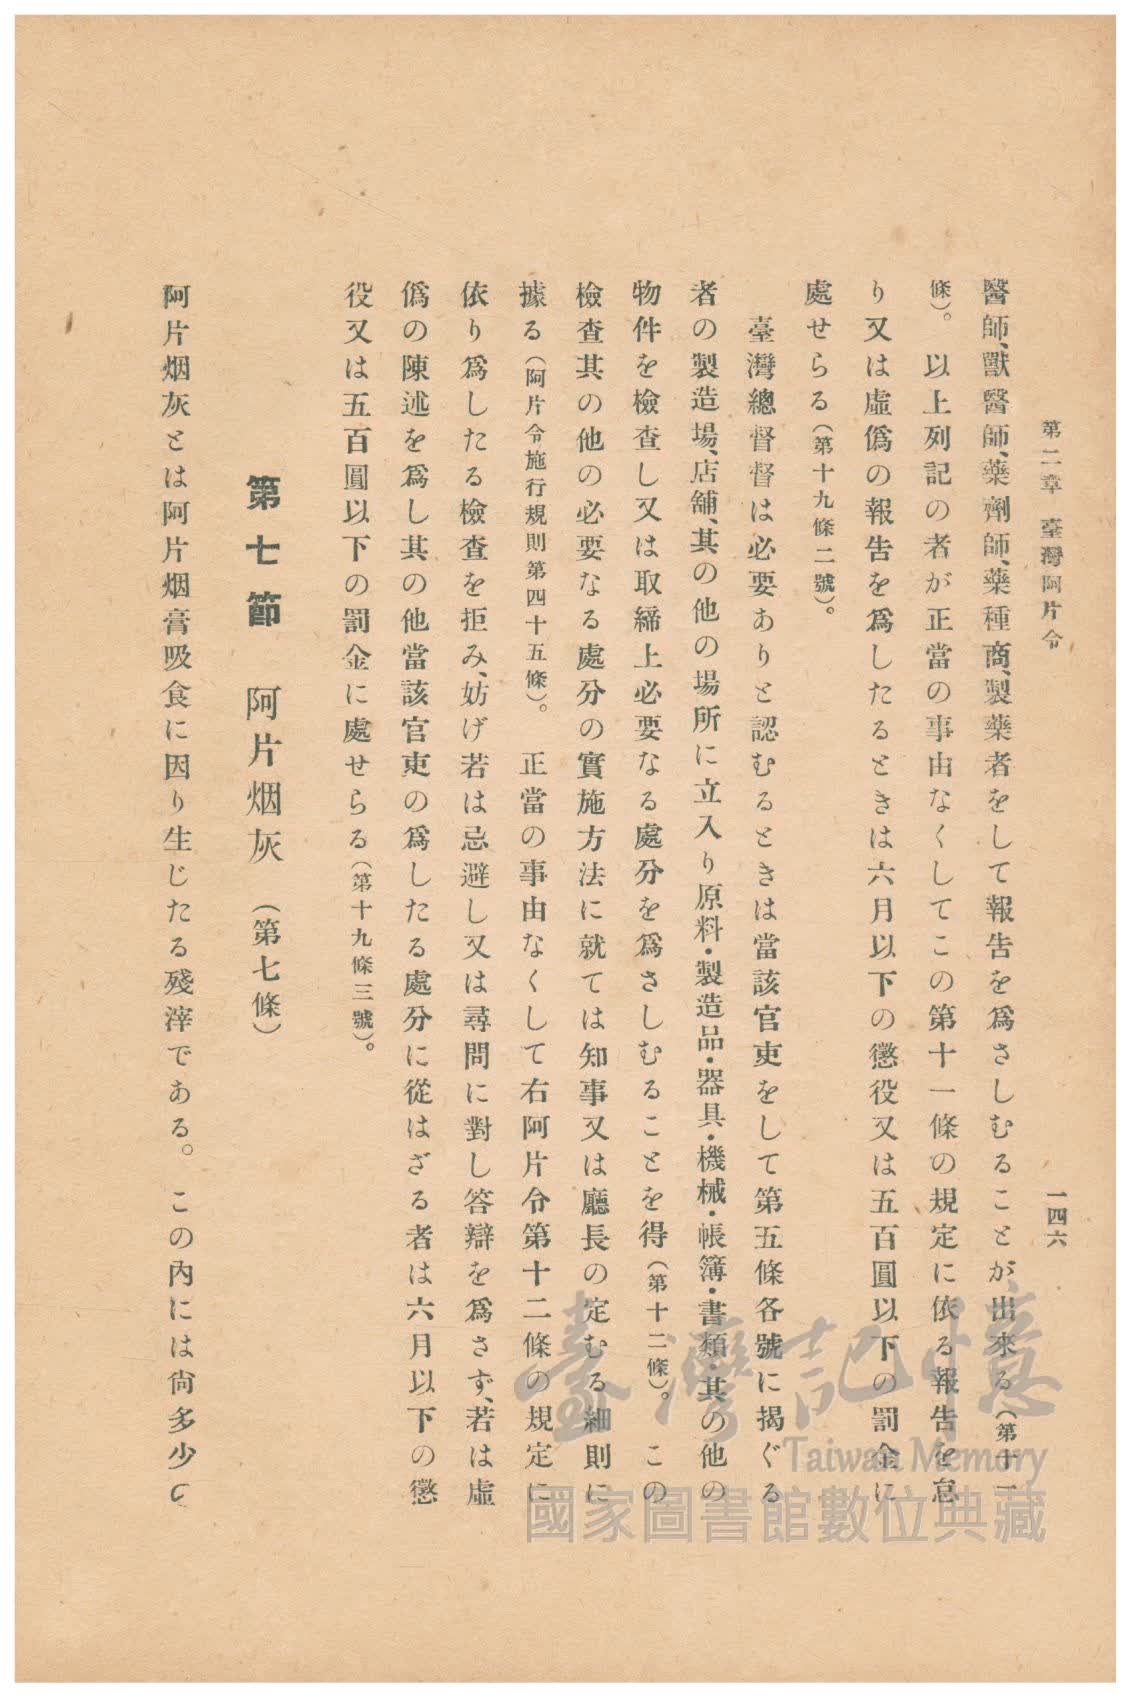 第二章 臺灣阿片令
一四六
醫師、獸醫師、藥劑師、藥種商、製藥者をして報告を爲さしむることが出來る(第十一
條)。 以上列記の者が正當の事由なくしてこの第十一條の規定に依る報告を怠
り又は虛僞の報告を爲したるときは六月以下の懲役又は五百圓以下の罰金に
處せらる(第十九條二號)。
臺灣總督督は必要ありと認むるときは當該官吏をして第五條各號に揭ぐる
者の製造場、店舖、其の他の場所に立入り原料・製造品・器具・機械・帳簿・書類・其の他の
物件を檢查し又は取締上必要なる處分を爲さしむることを得(第十二條)。 この
檢查其の他の必要なる處分の實施方法に就ては知事又は廳長の定むる細則に
據る(阿片令施行規則第四十五條)。 正當の事由なくして右阿片令第十二條の規定に
依り爲したる檢查を拒み、妨げ若は忌避し又は尋問に對し答辯を爲さず、若は虛
僞の陳述を爲し其の他當該官吏の爲したる處分に從はざる者は六月以下の懲
役又は五百圓以下の罰金に處せらる(第十九條三號)。
第七節 阿片烟灰 (第七條)
阿片烟灰とは阿片烟膏吸食に因り生じたる殘滓である。 この內には尙多少の
臺灣記憶
Taiwan Memory
國家圖書館數位典藏